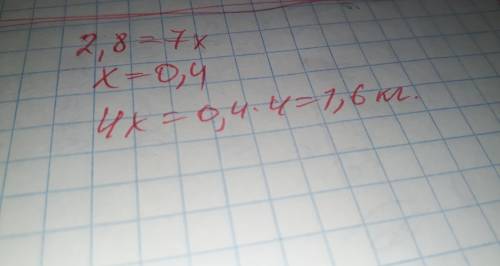 2,8=7x
x=0,4
4x=0,4·4=1,6 кг.